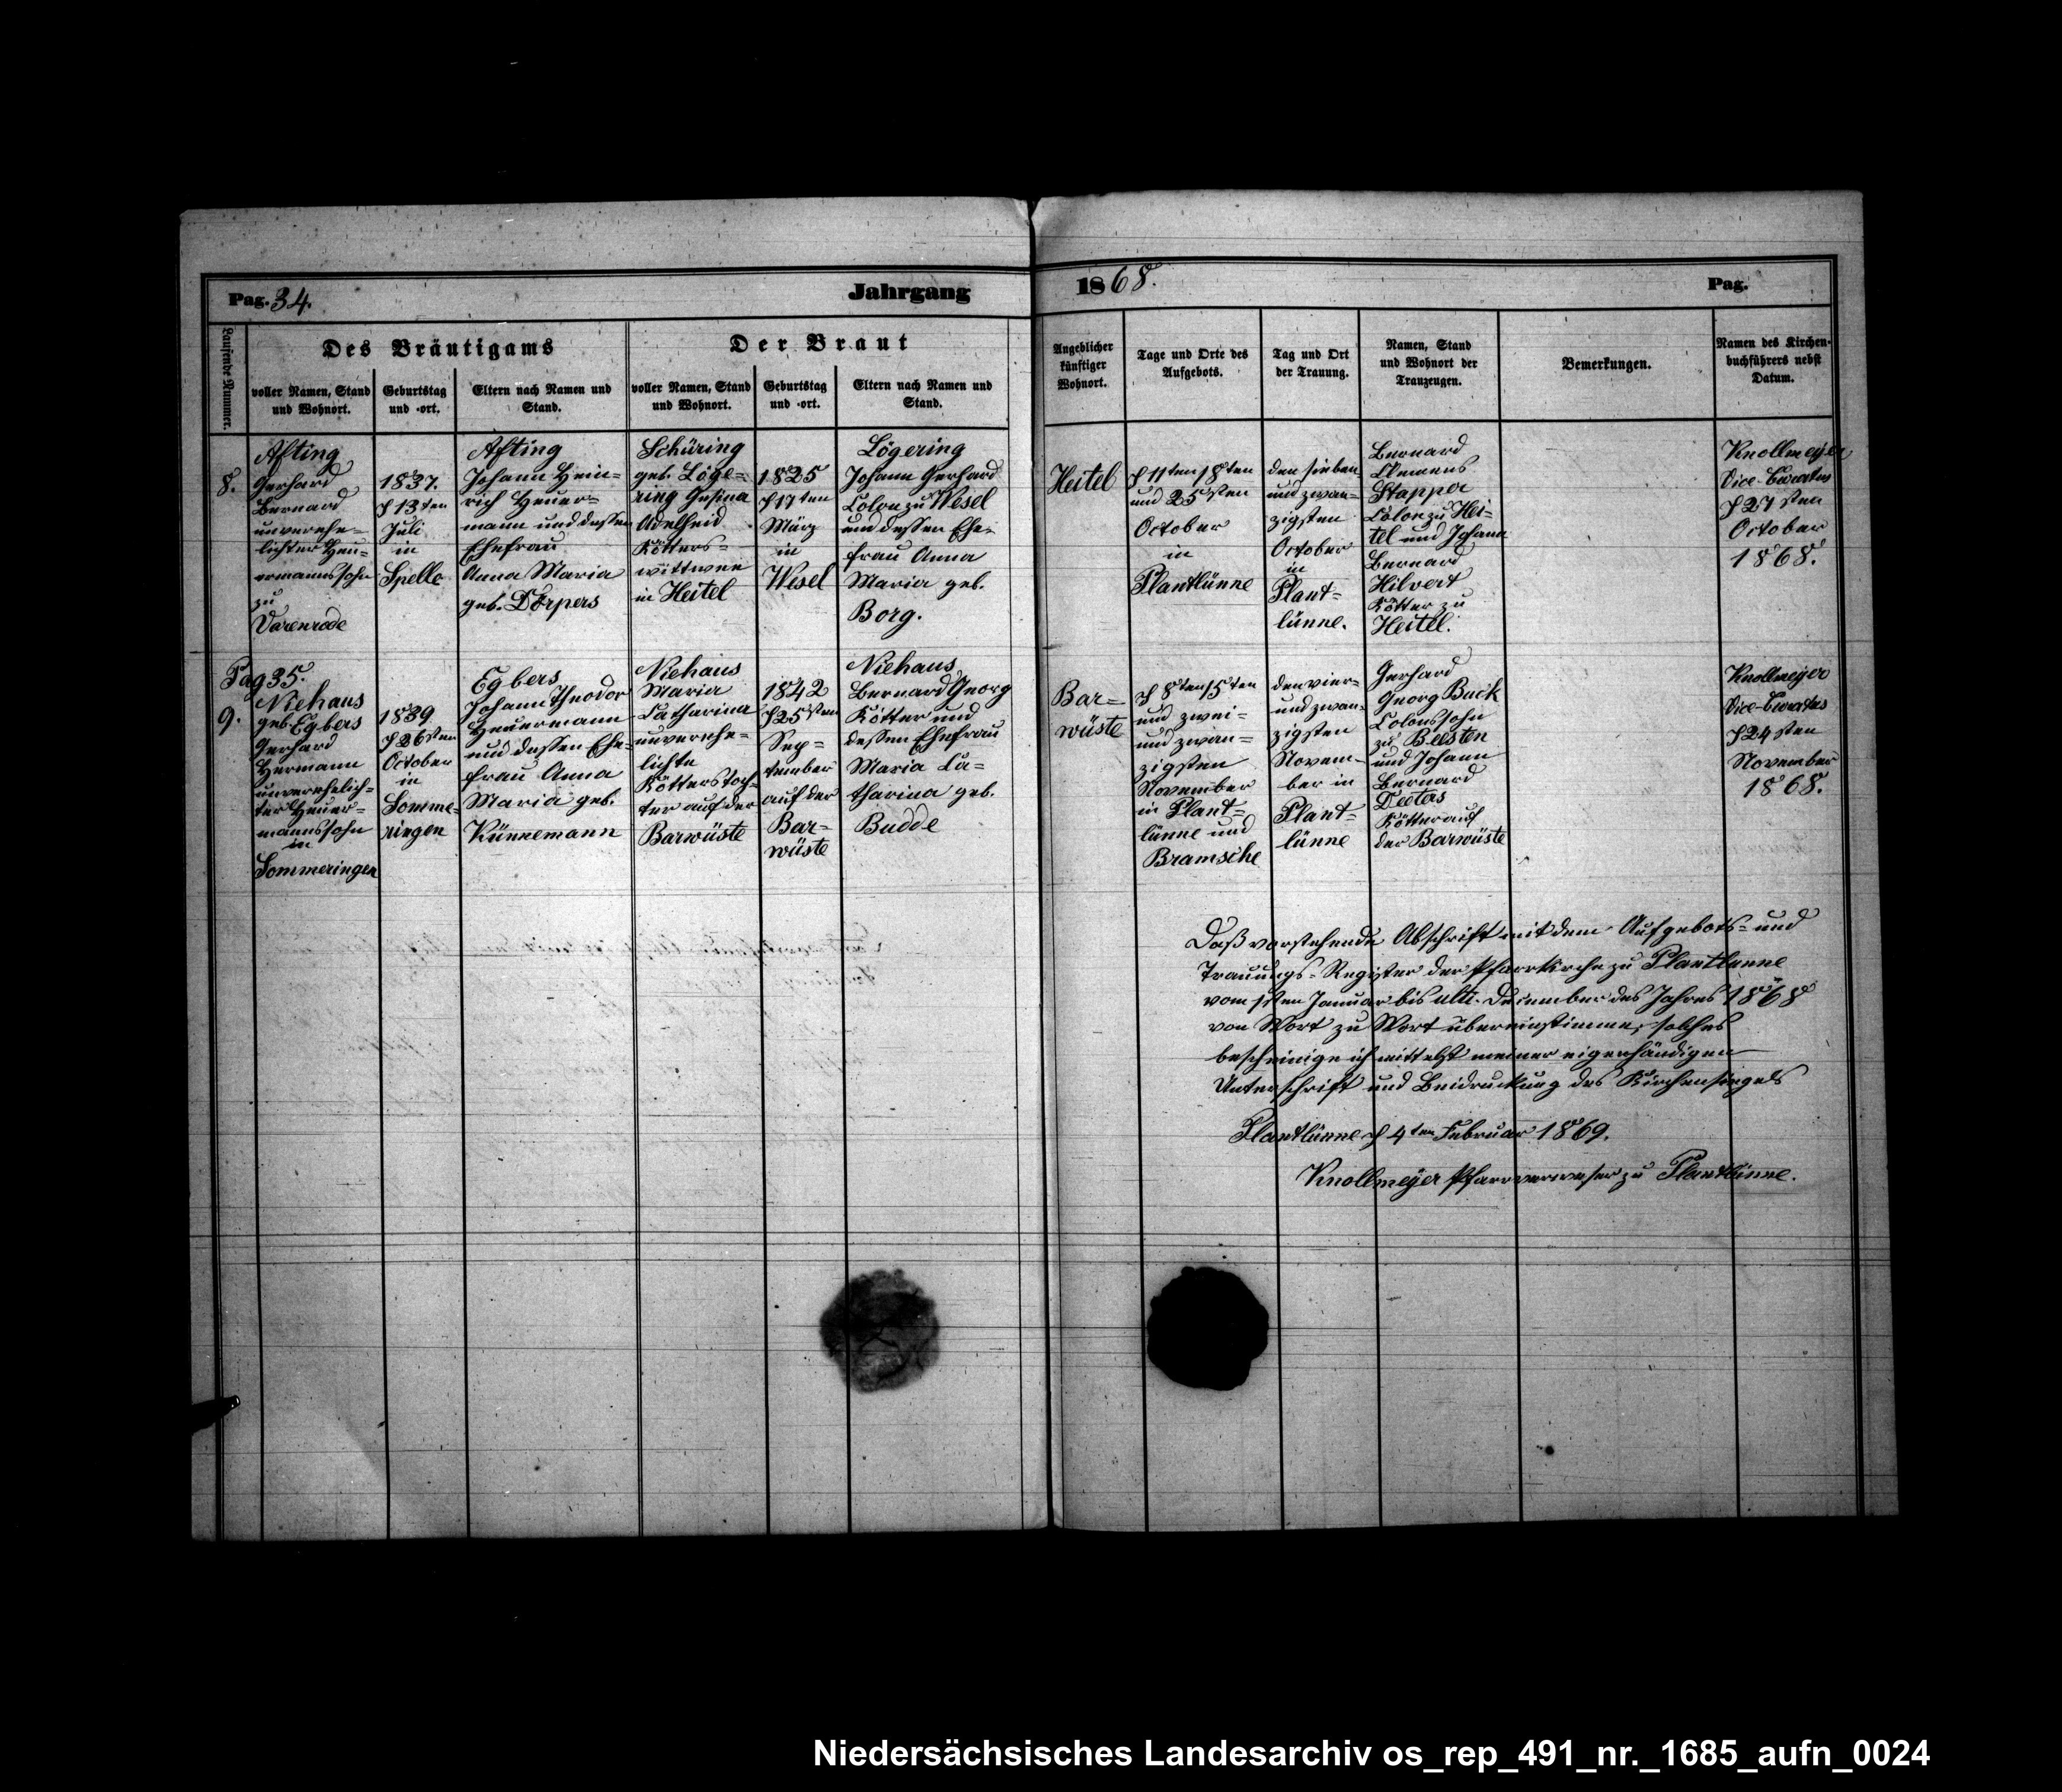 Pag. 34.
Jahrgang
1868.
Pag.
Laufende Nummer.
Des Bräutigams
voller Namen, Stand
und Wohnort.
Geburtstag
und -ort.
Eltern nach Namen und
Stand.
Der Braut
voller Namen, Stand
und Wohnort.
Geburtstag
und -ort.
Eltern nach Namen und
Stand.
Angeblicher
künftiger
Wohnort.
Tage und Orte des
Aufgebots.
Tag und Ort
der Trauung.
Namen, Stand
und Wohnort der
Trauzeugen.
Bemerkungen.
Namen des Kirchen-
buchführers nebst
Datum.
8.
Afting
Gerhard
Bernard
unverehe=
lichter Heu=
ermannssohn
zu
Varenrode
1837.
d 13ten
Juli
in
Spelle
Afting
Johann Hein=
rich Heuer=
mann und dessen
Ehefrau
Anna Maria
geb. Dörpers
Schüring
geb. Löge=
ring Gesina
Adelheid
Kötters=
wittwee
in Heitel
1825
d 17ten
März
in
Wesel
Lögering
Johann Gerhard
Colon zu Wesel
und dessen Ehe=
frau Anna
Maria geb.
Borg.
Heitel
d 11ten 18ten
und 25sten
October
in
Plantlünne
den sieben
und zwan=
zigsten
October
in
Plant=
lünne.
Bernard
Clemens
Stapper
Colon zu Hei=
tel und Johann
Bernard
Hilvert
Kötter zu
Heitel.
Knollmeyer
Vice-Curatus
d 27sten
October
1868.
Pag 35.
9.
Niehaus
geb. Egbers
Gerhard
Hermann
unverehelich=
ter Heuer=
mannssohn
in
Sommeringen
1839
d 26sten
October
in
Somme=
ringen
Egbers
Johann Theodor
Heuermann
und dessen Ehe=
frau Anna
Maria geb.
Künnemann
Niehaus
Maria
Catharina
unverehe=
lichte
Kötterstoch=
ter auf der
Barwüste
1842
d 25sten
Sep=
tember
auf der
Bar=
wüste
Niehaus
Bernard Georg
Kötter und
dessen Ehefrau
Maria Ca=
tharina geb.
Budde
Bar=
wüste
d 8ten 15ten
und zwei=
und zwan=
zigsten
November
in Plant=
lünne und
Bramsche
den vier=
und zwan=
zigsten
Novem=
ber in
Plant=
lünne
Gerhard
Georg Buck
Colonssohn
zu Beesten
und Johann
Bernard
Deeters
Kötter auf
der Barwüste
Knollmeyer
Vice-Curatus
d 24sten
November
1868.
Daß vorstehende Abschrift mit dem Aufgebots= und
Trauungs=Register der Pfarrkirche zu Plantlünne
vom 1sten Januar bis ult. December des Jahres 1868
von Wort zu Wort übereinstimme, solches
bescheinige ich mittelst meiner eigenhändigen
Unterschrift und Beidruckung des Kirchensiegels
Plantlünne d 4ten Februar 1869.
Knollmeyer Pfarrverweser zu Plantlünne.
Niedersächsisches Landesarchiv os_rep_491_nr._1685_aufn_0024